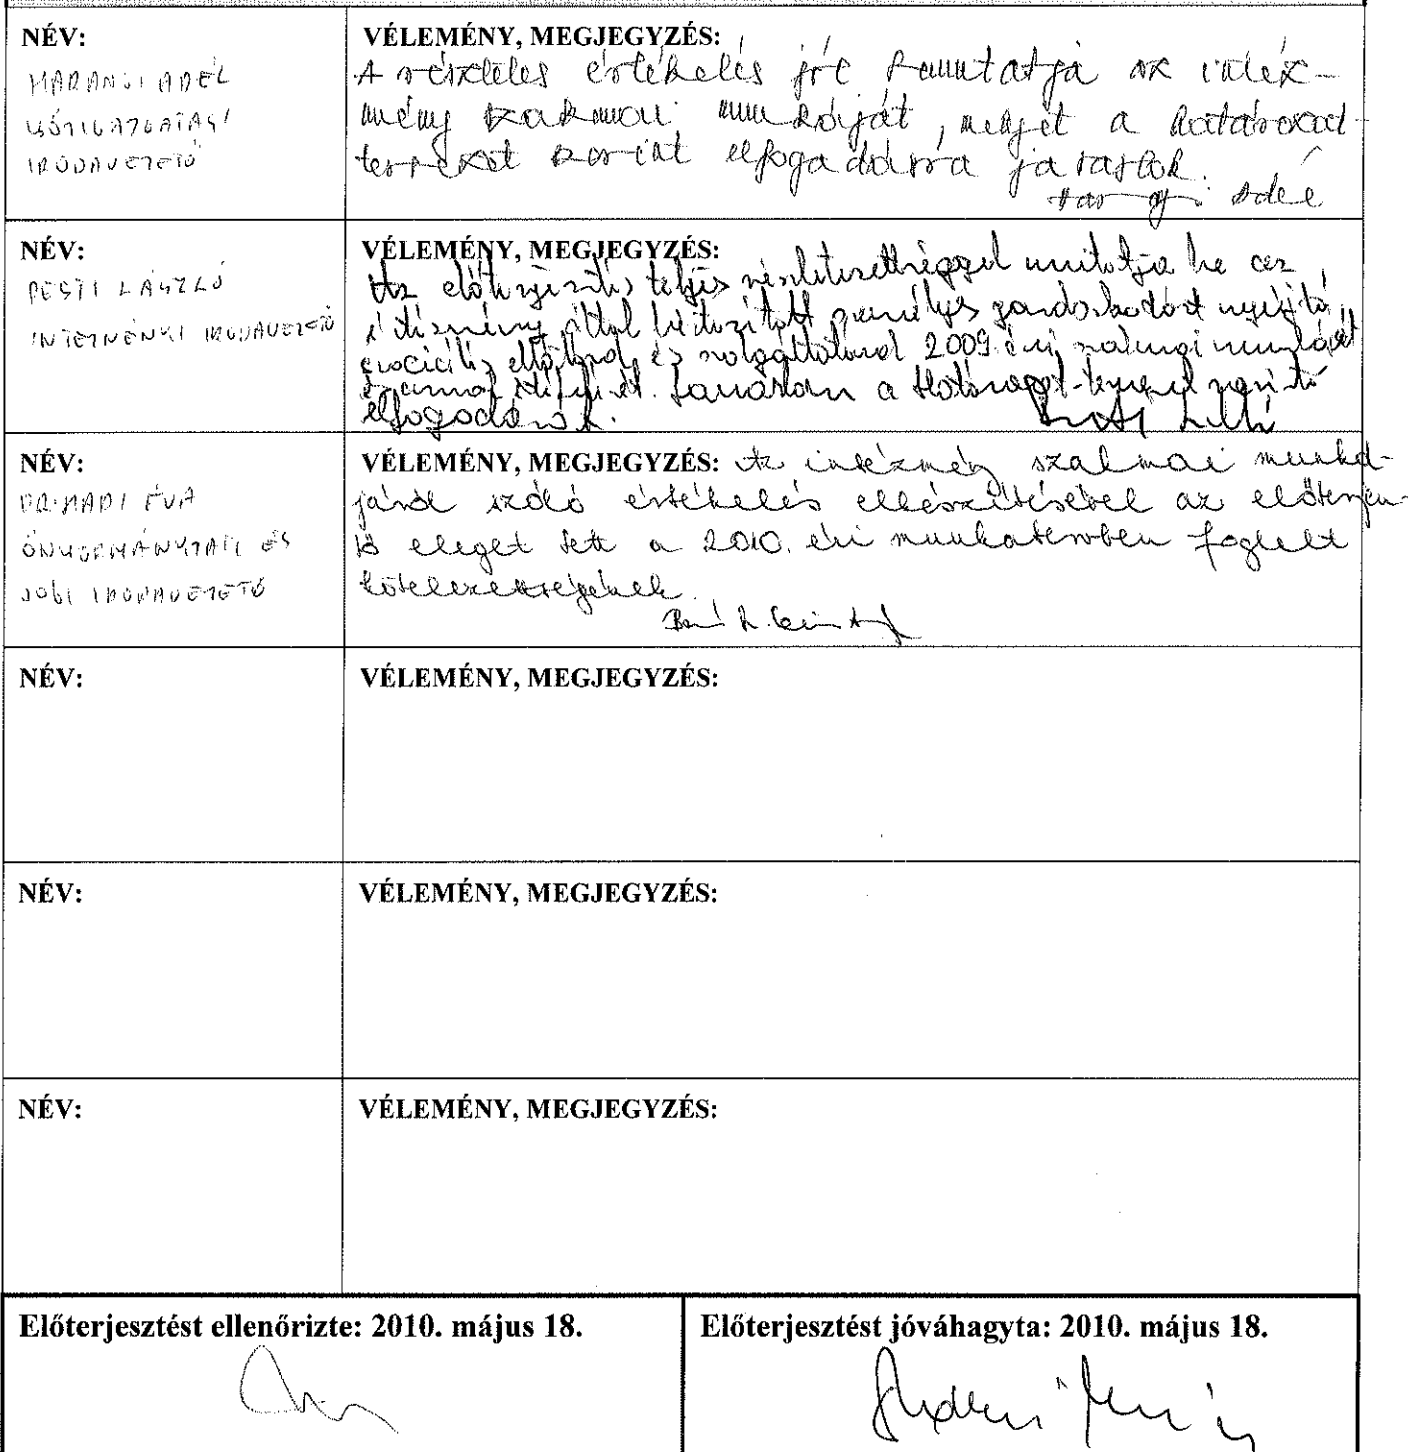 NÉV:
HARANGI ADÉL
KÖZIGAZGATÁSI
IRODAVEZETŐ
VÉLEMÉNY, MEGJEGYZÉS:
A részletes értékelés jól bemutatja az intéz-
mény szakmai munkáját, melyet a határozat-
tervezet szerint elfogadásra javaslok.
NÉV:
PESTI LÁSZLÓ
INTÉZMÉNYI IRODAVEZETŐ
VÉLEMÉNY, MEGJEGYZÉS:
Az előterjesztés teljes részletezettséggel mutatja be az
intézmény által biztosított személyes gondoskodást nyújtó
szociális ellátások és szolgáltatások 2009. évi szakmai munkáját
a Határozat-tervezet szerinti
elfogadását.
NÉV:
DR. HADI ÉVA
ÖNKORMÁNYZATI ÉS
JOGI IRODAVEZETŐ
VÉLEMÉNY, MEGJEGYZÉS: Az intézmény szakmai munká-
járól szóló értékelés elkészítésével az előterjesz-
tő eleget tett a 2010. évi munkatervben foglalt
kötelezettségének.
NÉV:
VÉLEMÉNY, MEGJEGYZÉS:
NÉV:
VÉLEMÉNY, MEGJEGYZÉS:
NÉV:
VÉLEMÉNY, MEGJEGYZÉS:
Előterjesztést ellenőrizte: 2010. május 18.
Előterjesztést jóváhagyta: 2010. május 18.